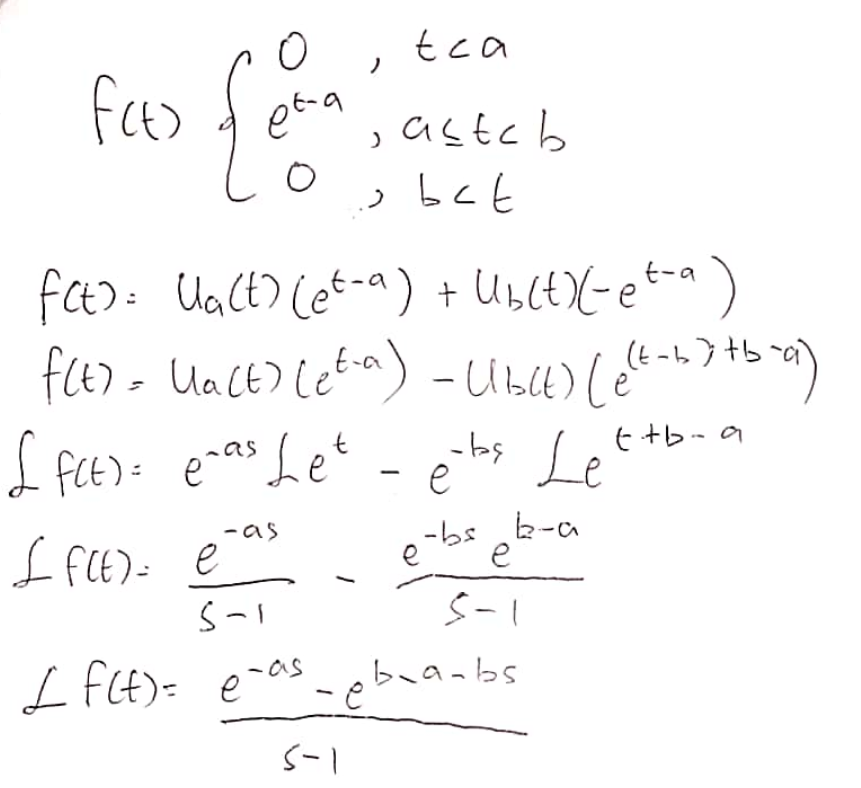 0 , t<a
f(t) { e^{t-a} , a≤t<b
0 , b<t
f(t)= U_a(t)(e^{t-a}) + U_b(t)(-e^{t-a})
f(t) = U_a(t)(e^{t-a}) - U_b(t)(e^{(t-b)+b-a})
ℒ f(t)= e^{-as} ℒe^t - e^{-bs} ℒe^{t+b-a}
ℒ f(t)= \frac{e^{-as}}{s-1} - \frac{e^{-bs} e^{b-a}}{s-1}
ℒ f(t)= \frac{e^{-as} - e^{b-a-bs}}{s-1}